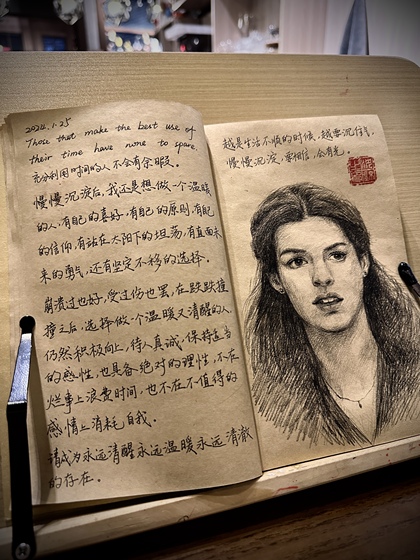 2024.1.25
Those that make the best use of
their time have none to spare.
充分利用时间的人,不会有余暇。
慢慢沉淀后,我还是想做一个温暖
的人,有自己的喜好,有自己的原则,有自己
的信仰,有站在太阳下的坦荡,有直面未
来的勇气,还有坚定不移的选择,
崩溃过也好,受过伤也罢,在跌跌撞
撞之后,选择做一个温暖又清醒的人,
仍然积极向上,待人真诚,保持适当
的感性,也具备绝对的理性,不在
烂事上浪费时间,也不在不值得的
感情上消耗自我。
请成为永远清醒永远温暖永远清澈
的存在。
越是生活不顺的时候,越要沉住气,
慢慢沉淀,要相信,会有光。